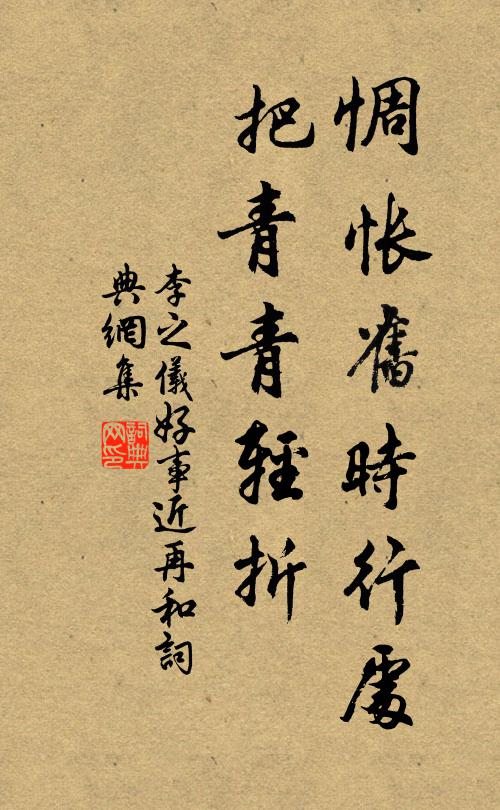 惆悵舊時行處
把青青輕折
李之儀好事近再和詞
典網集
詞典網印